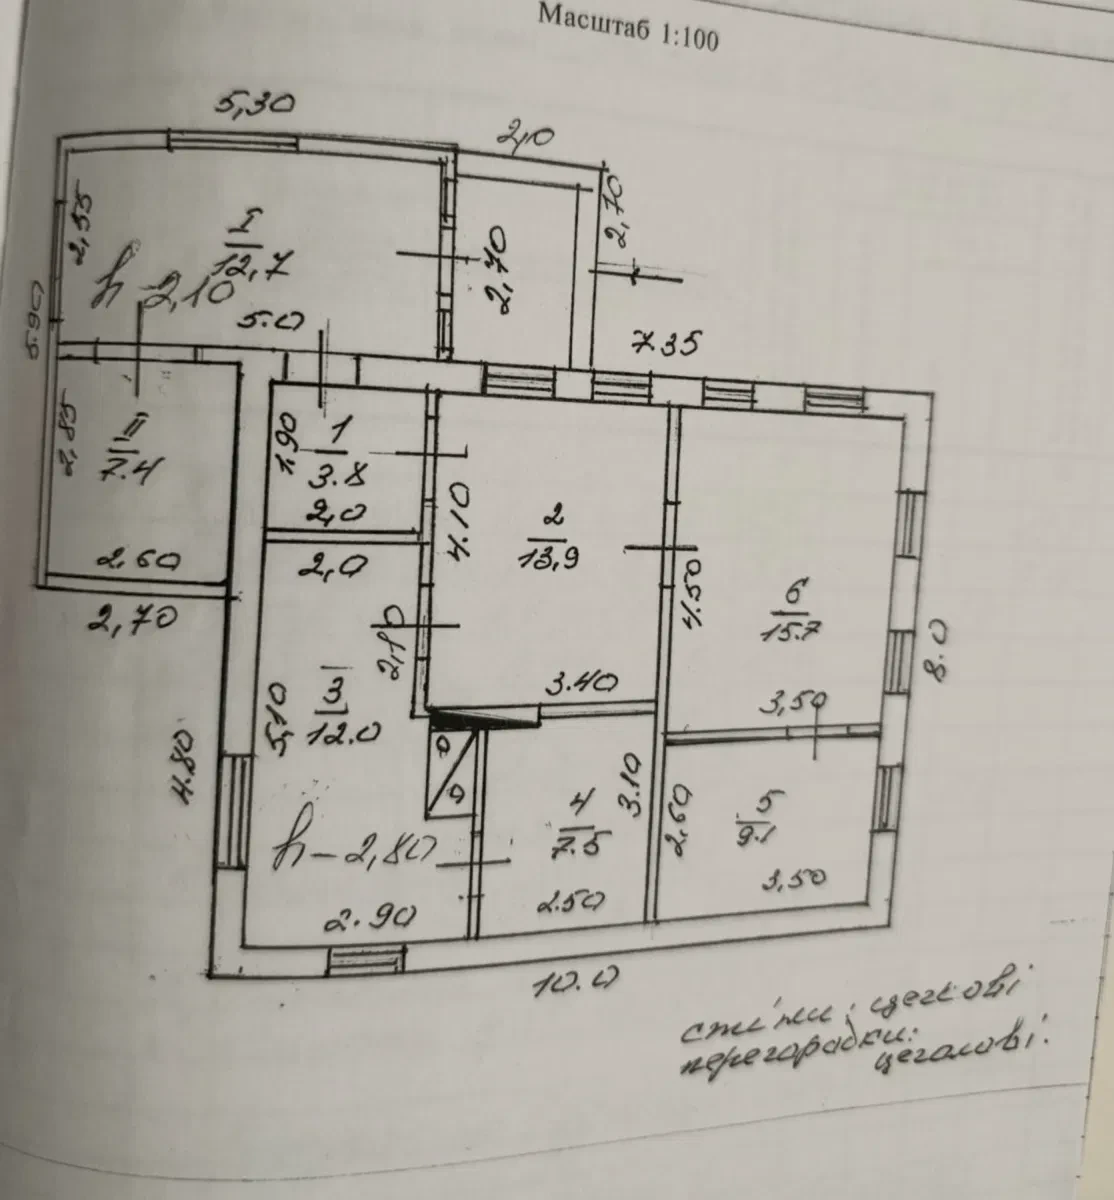 Масштаб 1:100
5,30
2,0
2,70
2,55
I
12,7
2,70
h-2,10
5.0
5.90
7.35
2,85
II
7.4
1,90
1
3.8
2,0
4.10
2
13,9
2,60
2,0
4.50
6
15.7
2,70
2,10
8.0
3.40
3,50
5,10
3
12.0
4.80
3.10
4
7.5
2,60
5
9.1
h-2,80
3,50
2.90
2.50
10.0
стіни: цеглові
перегородки:
цеглові.